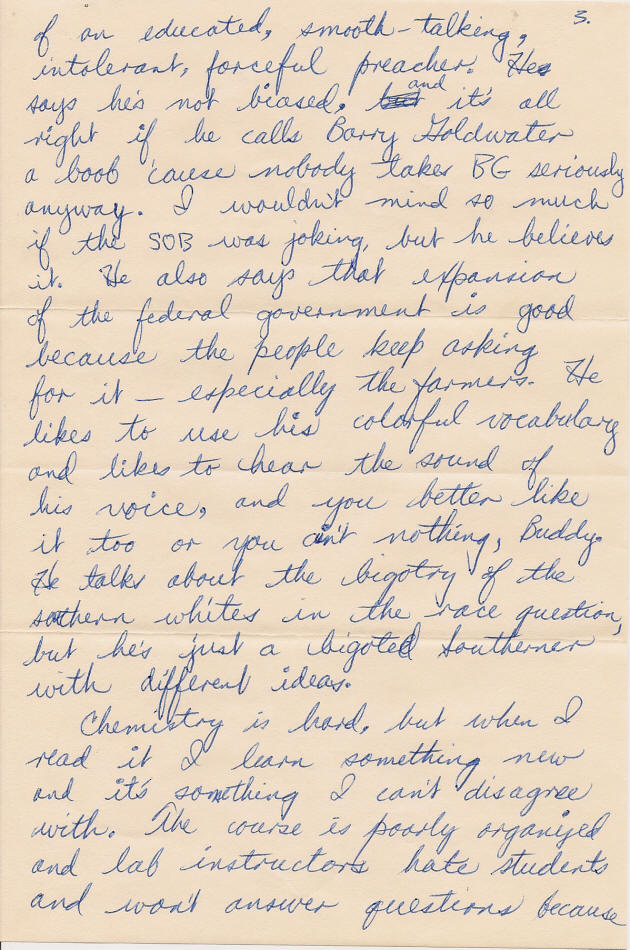 3.
of an educated, smooth-talking,
intolerant, forceful preacher. He
says he's not biased, and it's all
right if he calls Barry Goldwater
a boob 'cause nobody takes BG seriously
anyway. I wouldn't mind so much
if the SOB was joking, but he believes
it. He also says that expansion
of the federal government is good
because the people keep asking
for it — especially the farmers. He
likes to use his colorful vocabulary
and likes to hear the sound of
his voice, and you better like
it too or you ain't nothing, Buddy.
He talks about the bigotry of the
southern whites in the race question,
but he's just a bigoted Southerner
with different ideas.
Chemistry is hard, but when I
read it I learn something new
and it's something I can't disagree
with. The course is poorly organized
and lab instructors hate students
and won't answer questions because